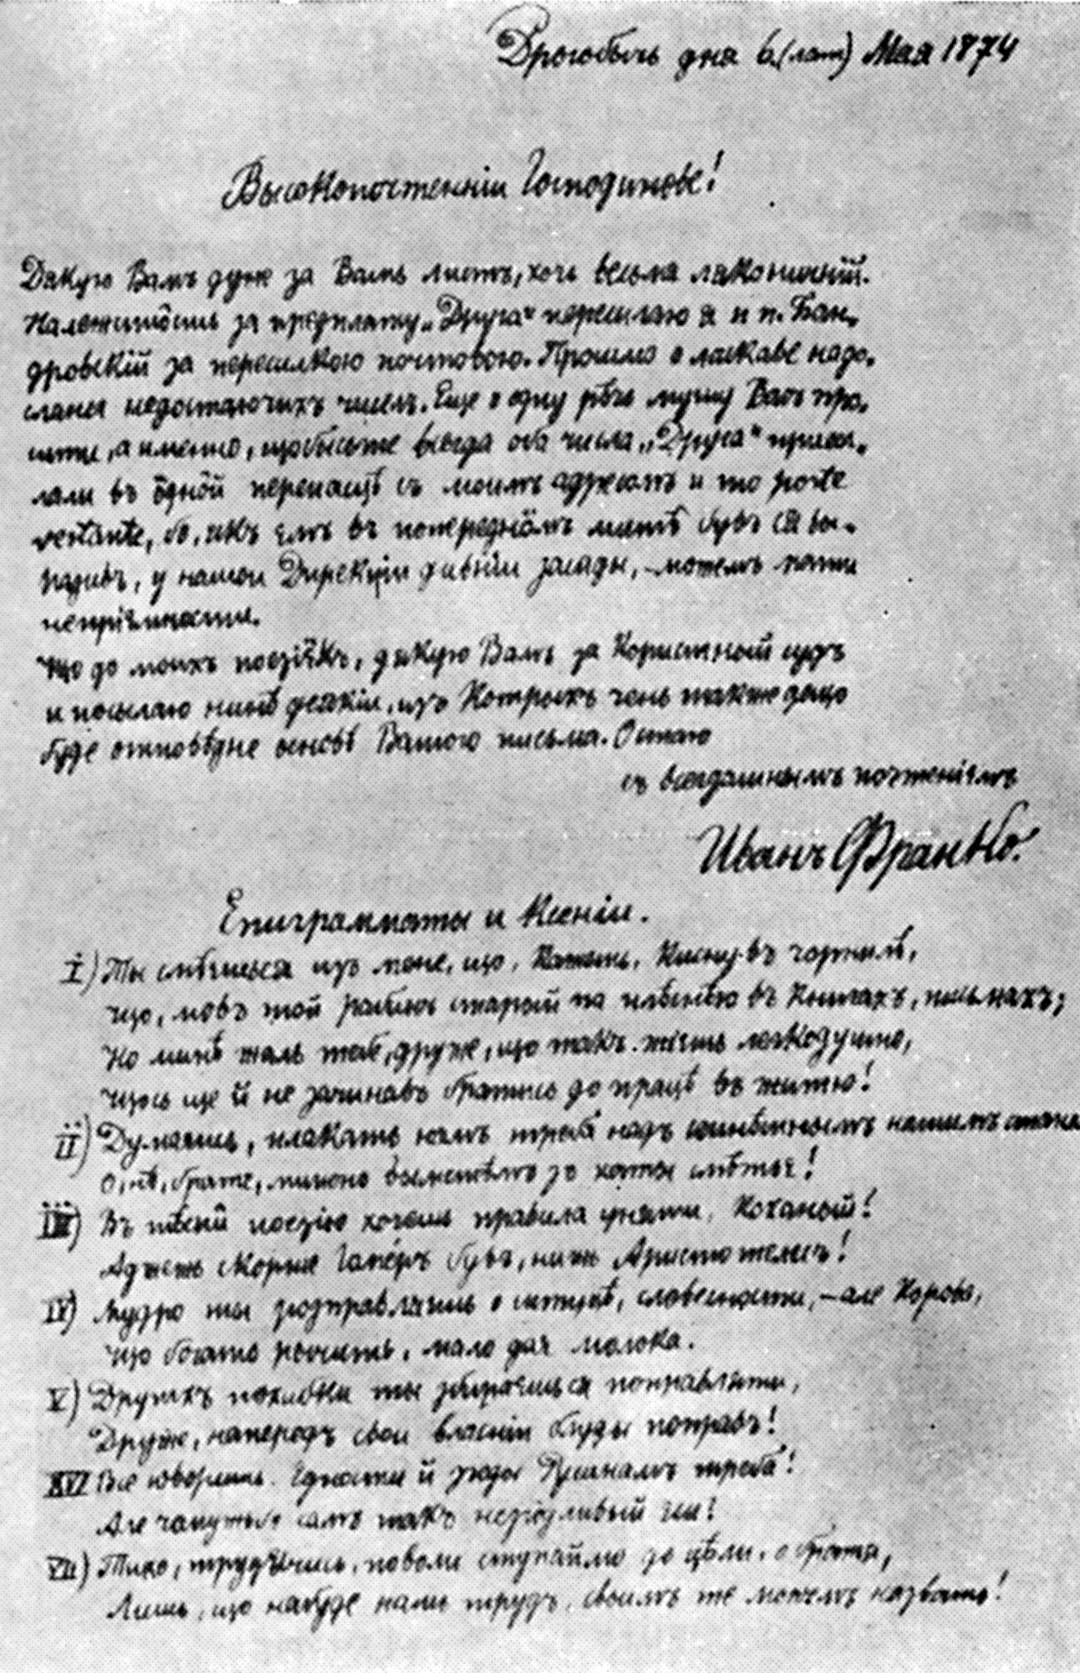 Дрогобычь дня 6 (лат) Мая 1874
Высокопочтенніи Господинове!
Дякую Вамъ дуже за Вашъ листъ, хоть весьма ляконичный.
Належитость за предплату „Друга“ пересылаю я и п. Бан-
дровскій за пересылкою почтовою. Прошмо о ласкаве надо-
сланье недостаючихъ чиселъ. Еще о одну рѣчь мушу Васъ про-
сити, а именно, щобысьте всегда оба числа „Друга“ присы-
лали въ одной перепасцѣ съ моимъ адресомъ и то poste
restante, бо, якъ емъ въ попереднôмъ листѣ бувъ ся вы-
разивъ, у нашои Дирекціи дивніи засады, – можемъ мати
непріємности.
Що до моихъ поезійокъ, дякую Вамъ за користный судъ
и посылаю нинѣ деякіи, изъ котрыхъ чень также дещо
буде отповѣдне основѣ Вашого письма. Остаю
съ всегдашнымъ почтеніємъ
Иванъ Франко.
Епиграмматы и Ксеніи.
I) Ты смѣєшься изъ мене, що, кажешь, кисну въ чорнилѣ,
що, мовъ той раббинъ старый по плѣснѣю въ книгахъ, письмахъ;
Но минѣ жаль тебе, друже, що такъ жієшь легкодушно,
щось ще й не зачинавъ братись до працѣ въ житью!
II) Думаєшь, плакать намъ треба надъ нашимъ
О, нѣ, брате, мишь выметѣмъ зъ хаты смѣтьє!
III) Въ тѣсни поезію хочешь правила уняти, коханый!
Аджежь скорше Гомеръ бувъ, нижъ Аристотелесъ!
IV) Мудро ты розправляєшь о штуцѣ, словесности, – але корова,
що богато рычить, мало дає молока.
V) Другихъ похибки ты збираєшься поправляти,
Друже, напередъ свои власніи блуды поправъ!
VI Все говоришь: Едности й згоды Русинамъ треба!
Але чомужь самъ такъ незгодливый єси?
VII) Тихо, трудячись, поволи ступаймо до цѣли, о братья,
Лишь, що набуде нашъ трудъ, своимъ те можемъ назвать!